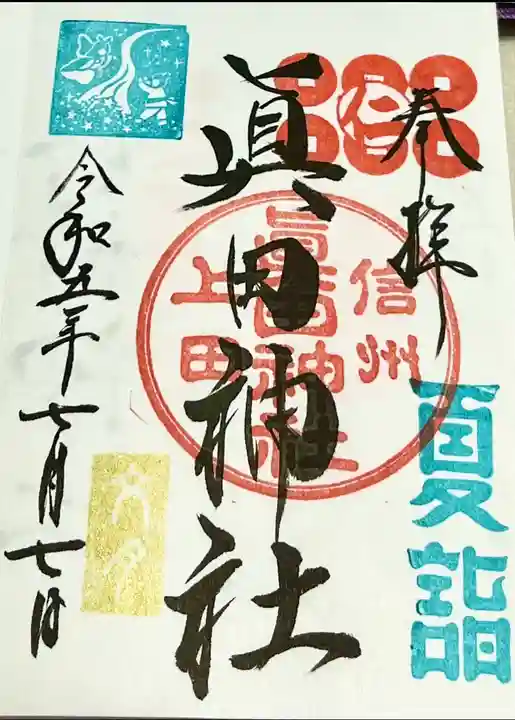 奉拝
夏詣
仁
眞田神社
信州
眞田神社
上田
令和五年七月七日